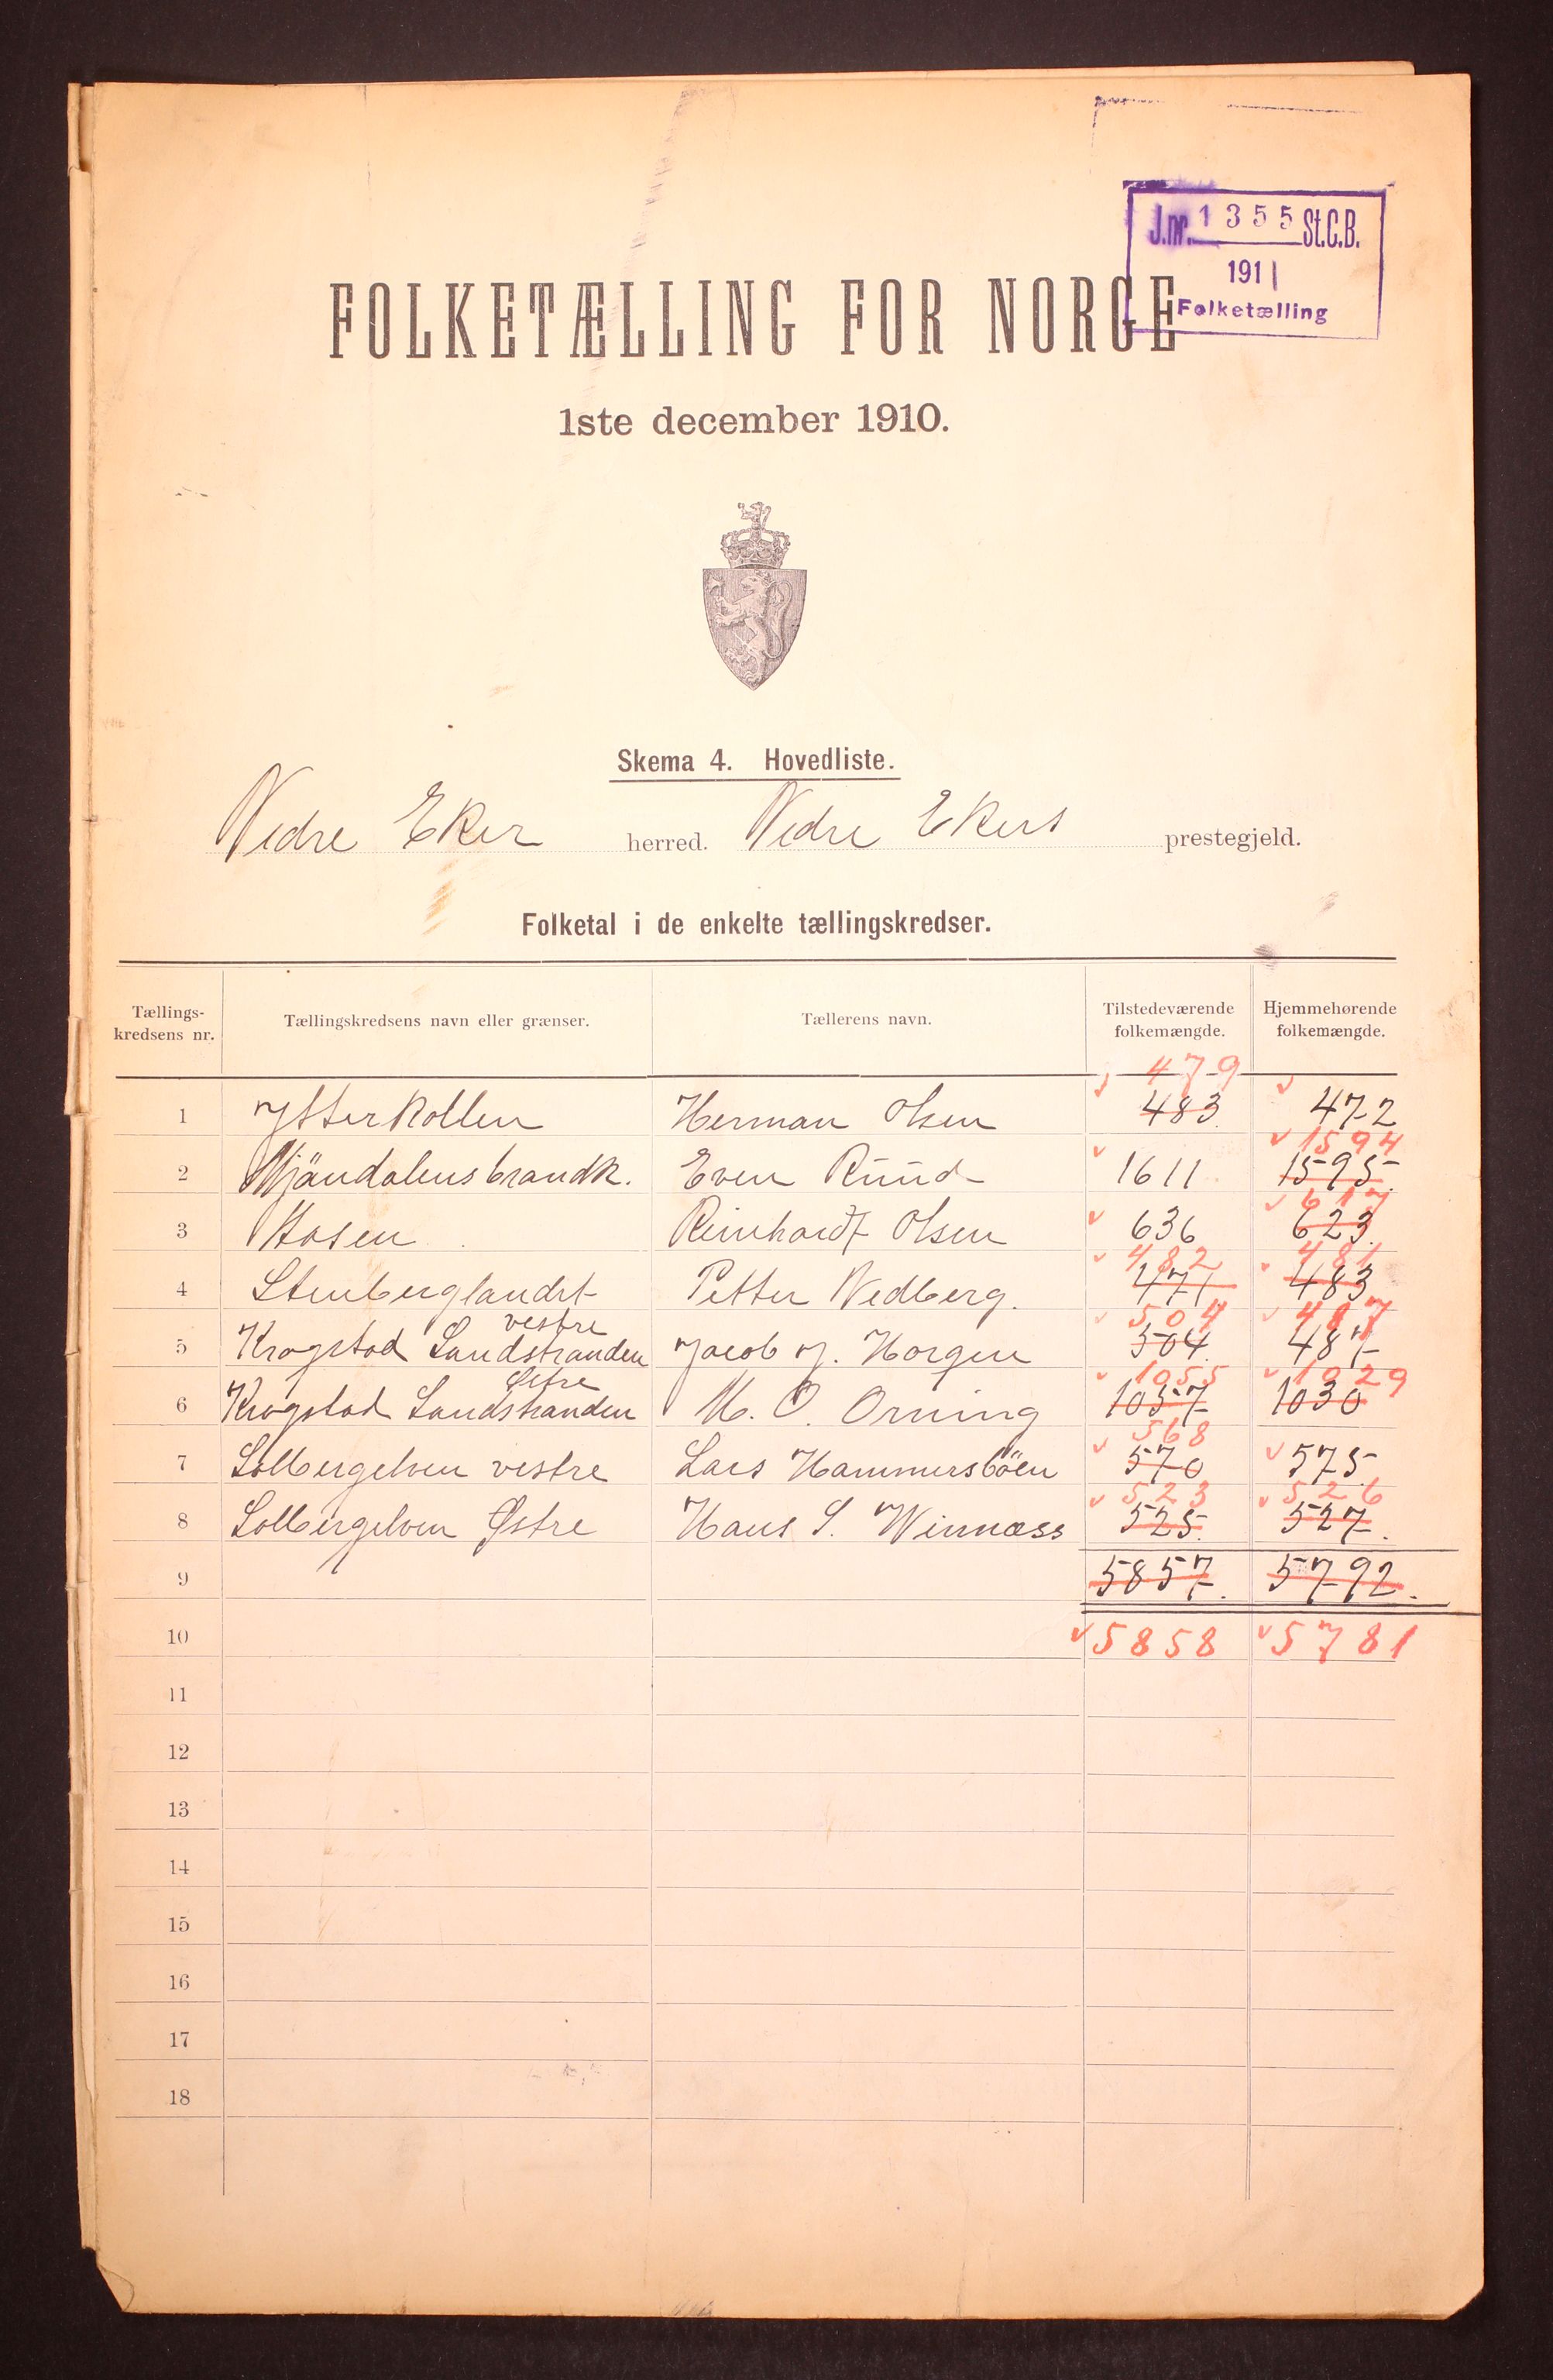 J.nr. 1355 St.C.B.
1911
Folketælling
FOLKETÆLLING FOR NORGE
1ste december 1910.
Skema 4. Hovedliste.
Nedre Eker herred. Nedre Ekers prestegjeld.
Folketal i de enkelte tællingskredser.
Tællings-kredsens nr. Tællingskredsens navn eller grænser. Tællerens navn. Tilstedeværende folkemængde. Hjemmehørende folkemængde.
479
1 Ytterkollen Herman Olsen 483. 472
1594
2 Mjöndalens brandk. Even Ruud 1611 1595.
617
3 Aasen Reinhardt Olsen 636 623.
482 481
4 Stenberglandet Petter Nedberg. 471 483
vestre 504 487
5 Krogstad Landstranden Jacob J. Horgen 504. 487
Østre 1055 1029
6 Krogstad Landstranden M. O. Orning 1057 1030
568
7 Solbergelven vestre Lars Hammersböen 570 575.
523 526
8 Solbergelven Østre Hans S. Winnæss 525. 527.
9 5857. 5792.
10 5858 5781
11
12
13
14
15
16
17
18